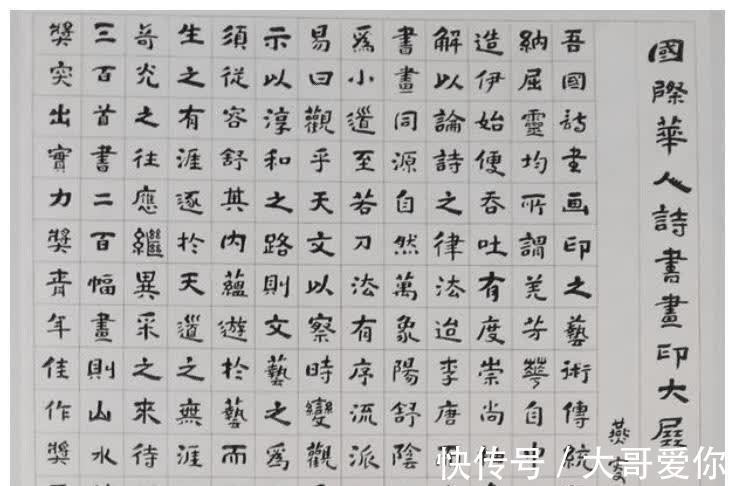 國際華人詩書畫印大展
燕客
吾國詩書画印之藝術傳統
納屈靈均所謂羌芳華自中
造伊始便吞吐有度崇尚
解以論詩之律法迨李唐
書畫同源自然萬象陽舒陰
爲小道至若刀法有序流派
易曰觀乎天文以察時變觀
示以淳和之路則文藝之爲
須從容舒其内蘊遊於藝而
生之有涯逐於天道之無涯
哥光之往應繼異采之來待
三百首書二百幅畫則山水
獎突出實力獎青年佳作獎
快传号／大哥爱你